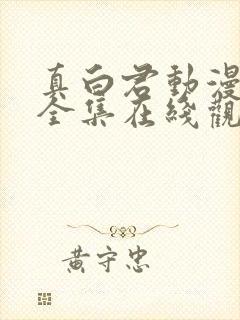 真白君動漫
全集在綫觀
黃守忠